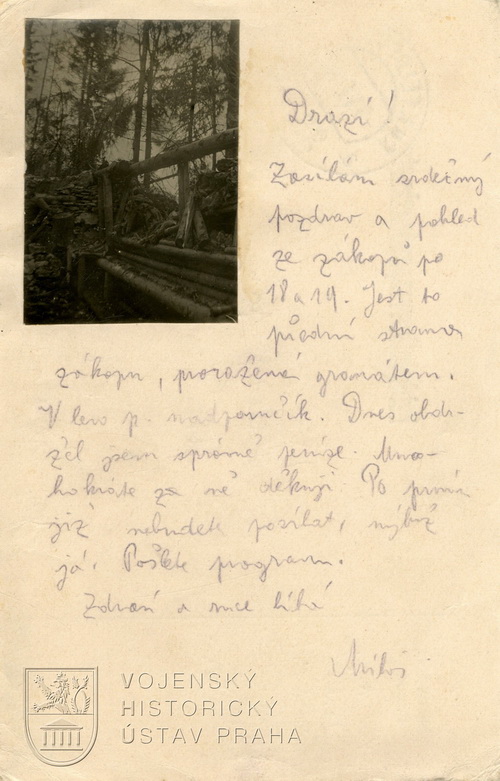 Drazí!
Zasílám srdečný
pozdrav a pohled
ze zákopů po
18 a 19. Jest to
přední strana
zákopu, proražená granátem.
V levo p. nadporučík. Dnes obdr-
žel jsem správně peníze. Mno-
hokráte za ně děkuji. Po prvním
již nebudete posílat, nýbrž
já. Pošlete program.
Zdraví a ruce líbá
Miloš
VOJENSKÝ
HISTORICKÝ
ÚSTAV PRAHA